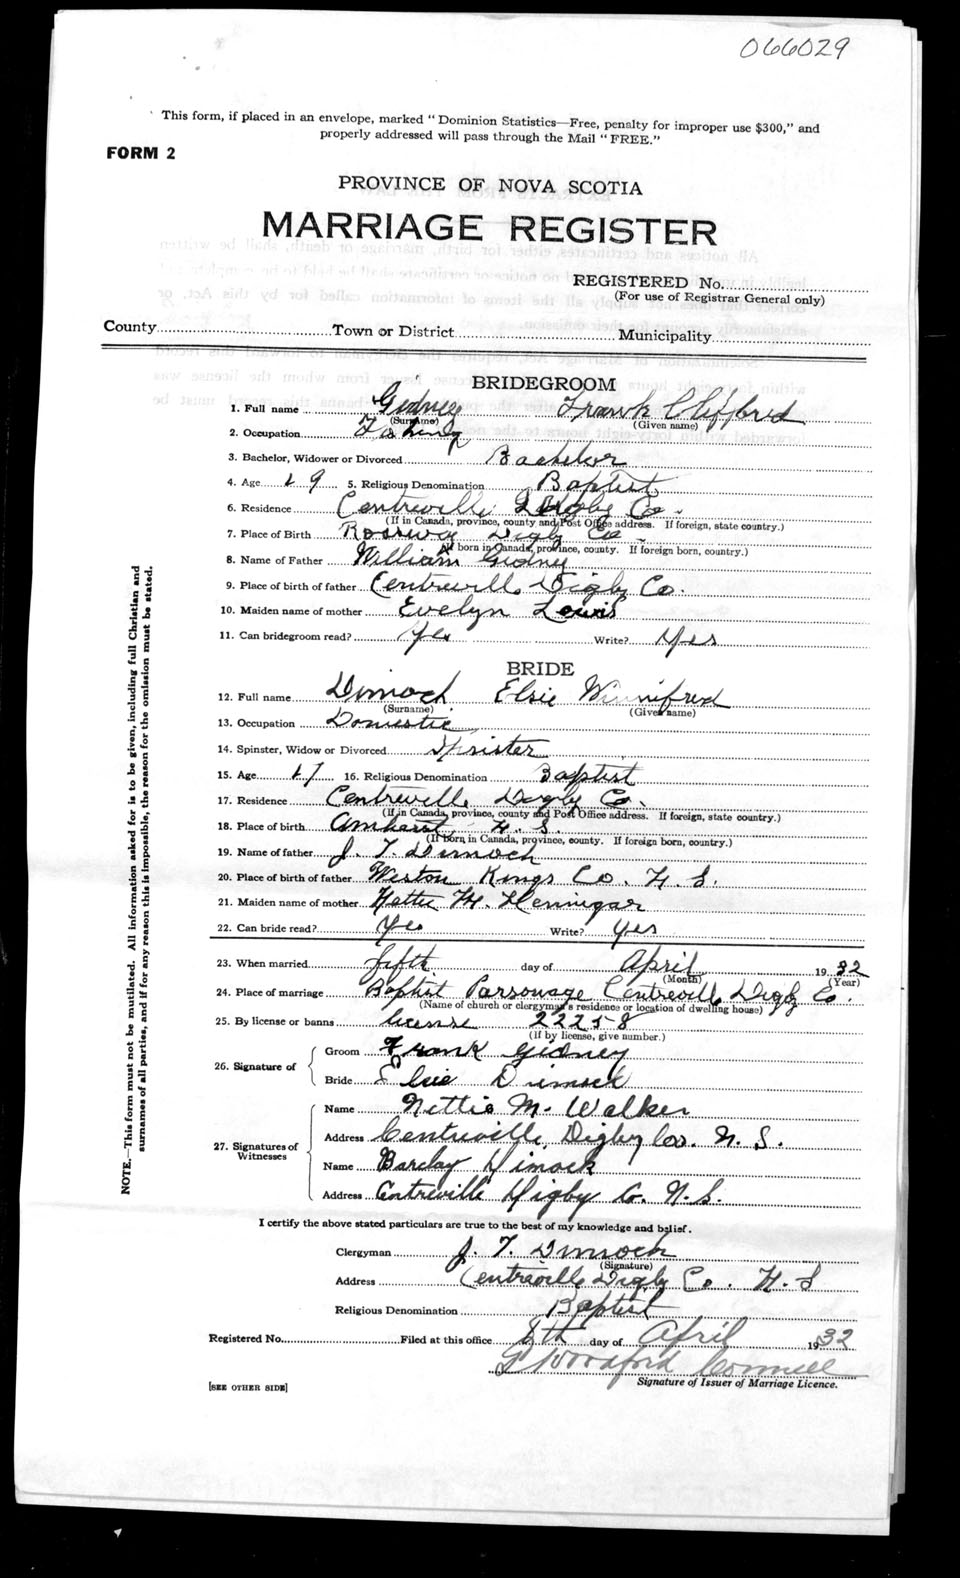 066029
This form, if placed in an envelope, marked "Dominion Statistics—Free, penalty for improper use $300," and
properly addressed will pass through the Mail "FREE."
FORM 2
PROVINCE OF NOVA SCOTIA
MARRIAGE REGISTER
REGISTERED No.
(For use of Registrar General only)
County Town or District Municipality
BRIDEGROOM
1. Full name Gidney Frank Clifford
(Surname) (Given name)
2. Occupation
3. Bachelor, Widower or Divorced Bachelor
4. Age 29 5. Religious Denomination Baptist
6. Residence Centreville Digby Co.
(If in Canada, province, county and Post Office address. If foreign, state country.)
7. Place of Birth Rossway Digby Co.
(If born in Canada, province, county. If foreign born, country.)
8. Name of Father William Gidney
9. Place of birth of father Centreville Digby Co.
10. Maiden name of mother Evelyn Lewis
11. Can bridegroom read? Yes Write? Yes
BRIDE
12. Full name Dimock Elsie Winnifred
(Surname) (Given name)
13. Occupation Domestic
14. Spinster, Widow or Divorced Spinster
15. Age 27 16. Religious Denomination Baptist
17. Residence Centreville Digby Co.
(If in Canada, province, county and Post Office address. If foreign, state country.)
18. Place of birth Amherst, N.S.
(If born in Canada, province, county. If foreign born, country.)
19. Name of father J. T. Dimock
20. Place of birth of father Weston Kings Co. N.S.
21. Maiden name of mother Hennigar
22. Can bride read? Yes Write? Yes
23. When married fifth day of April 1932
(Month) (Year)
24. Place of marriage Baptist Parsonage Centreville Digby Co.
(Name of church or clergyman's residence or location of dwelling house)
25. By license or banns license 22258
(If by license, give number.)
26. Signature of
Groom Frank Gidney
Bride Elsie Dimock
27. Signatures of
Witnesses
Name Nettie M. Walker
Address Centreville, Digby Co. N.S.
Name Barclay Dimock
Address Centreville Digby Co. N.S.
I certify the above stated particulars are true to the best of my knowledge and belief.
Clergyman J. T. Dimock
(Signature)
Address Centreville Digby Co. N.S
Religious Denomination Baptist
Registered No. Filed at this office 8th day of April 1932
Signature of Issuer of Marriage Licence.
[SEE OTHER SIDE]
NOTE.—This form must not be mutilated. All information asked for is to be given, including full Christian and
surnames of all parties, and if for any reason this is impossible, the reason for the omission must be stated.